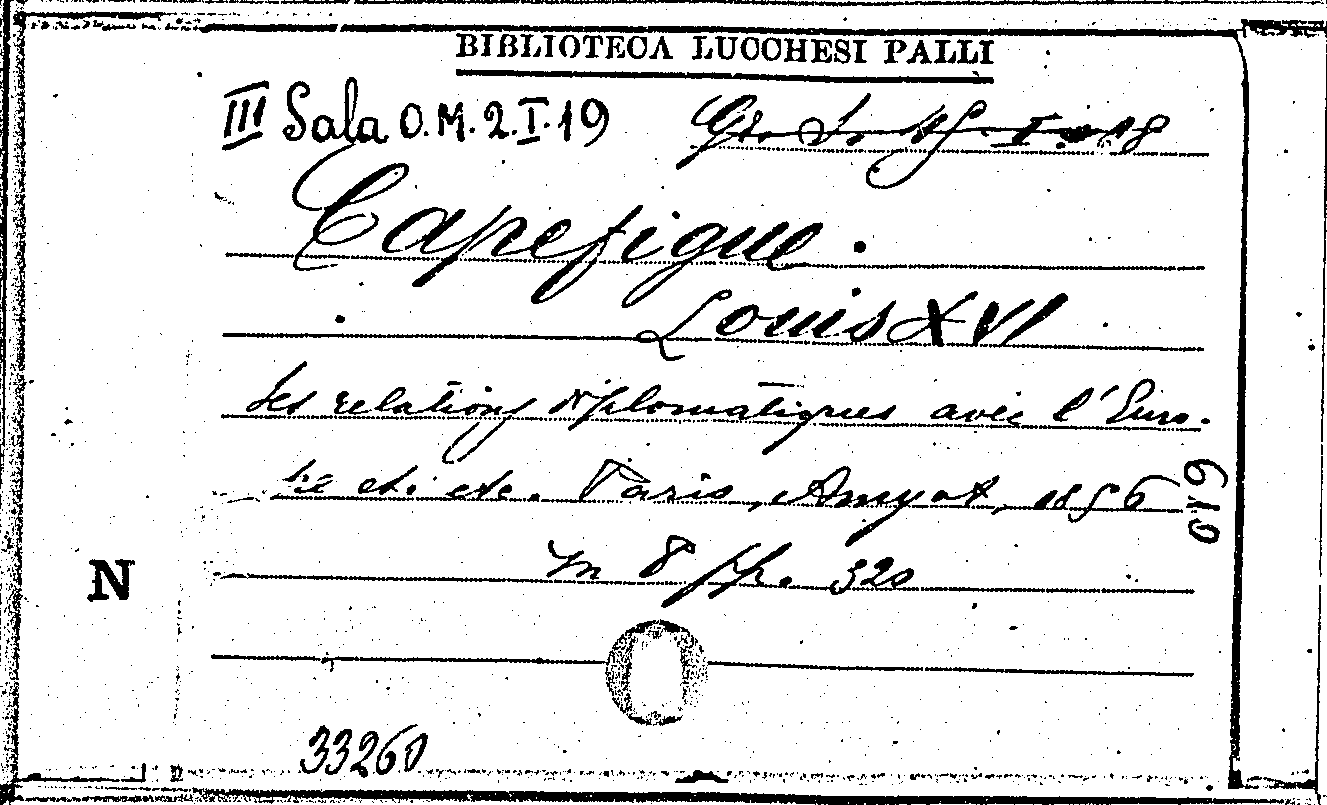 BIBLIOTECA LUCCHESI PALLI
III Sala O.M.2.I.19 Gr. S. 45. I. 18
Capefigue.
Louis XVI
Ses relations diplomatiques avec l'Euro-
pe etc. etc. Paris, Amyot, 1856
in 8 pp. 320
019
N
33260